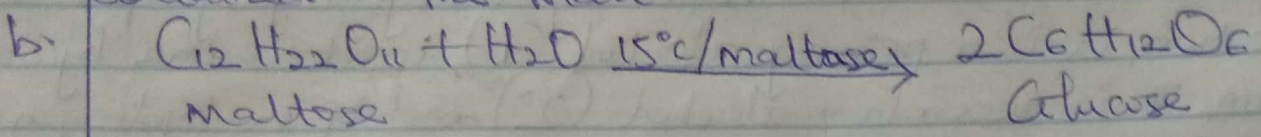 b. C12 H22 O11 + H2O 15°C/maltase → 2 C6 H12 O6
Maltose Glucose